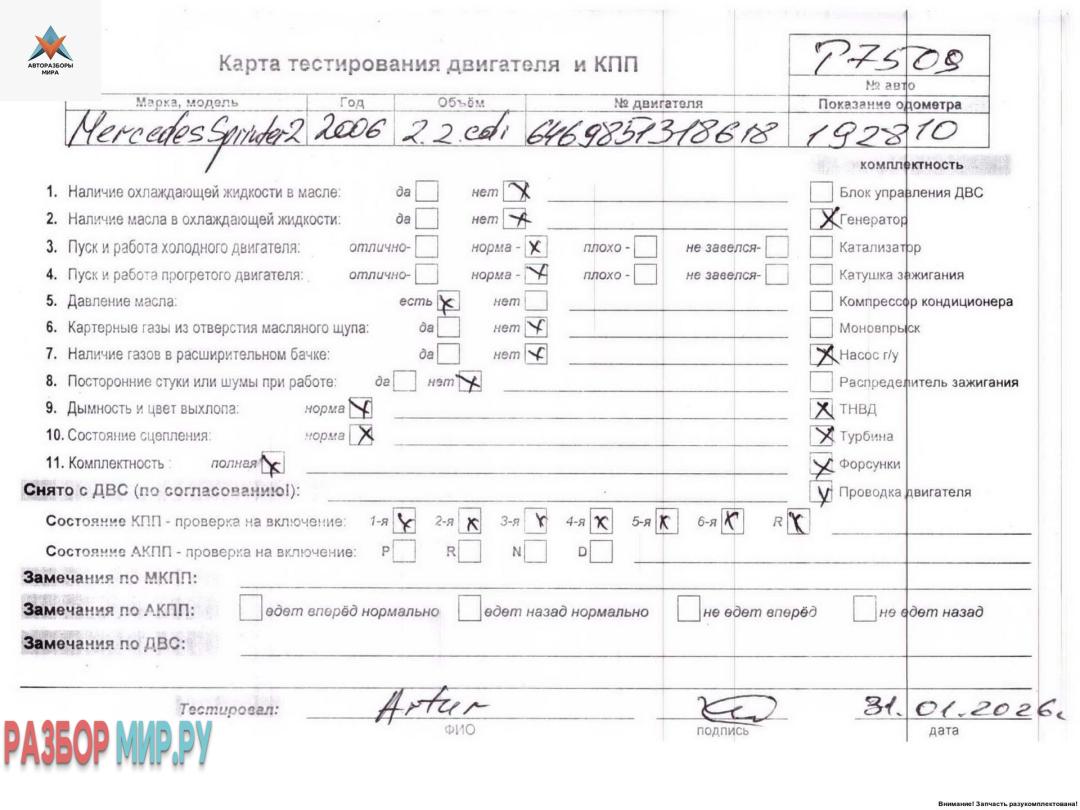 АВТОРАЗБОРЫ
МИРА
Карта тестирования двигателя и КПП
P7509
№ авто
Марка, модель Год Объём № двигателя Показание одометра
Mercedes Sprinter2 2006 2.2 cdi 6469851318618 192810
комплектность
1. Наличие охлаждающей жидкости в масле: да нет Блок управления ДВС
2. Наличие масла в охлаждающей жидкости: да нет Генератор
3. Пуск и работа холодного двигателя: отлично- норма - плохо - не завелся- Катализатор
4. Пуск и работа прогретого двигателя: отлично- норма - плохо - не завелся- Катушка зажигания
5. Давление масла: есть нет Компрессор кондиционера
6. Картерные газы из отверстия масляного щупа: да нет Моновпрыск
7. Наличие газов в расширительном бачке: да нет Насос г/у
8. Посторонние стуки или шумы при работе: да нет Распределитель зажигания
9. Дымность и цвет выхлопа: норма ТНВД
10. Состояние сцепления: норма Турбина
11. Комплектность : полная Форсунки
Снято с ДВС (по согласованию!): Проводка двигателя
Состояние КПП - проверка на включение: 1-я 2-я 3-я 4-я 5-я 6-я R
Состояние АКПП - проверка на включение: P R N D
Замечания по МКПП:
Замечания по АКПП: едет вперёд нормально едет назад нормально не едет вперёд не едет назад
Замечания по ДВС:
Тестировал: Artur 31.01.2026г.
ФИО подпись дата
РАЗБОРМИР.РУ
Внимание! Запчасть разукомплектована!